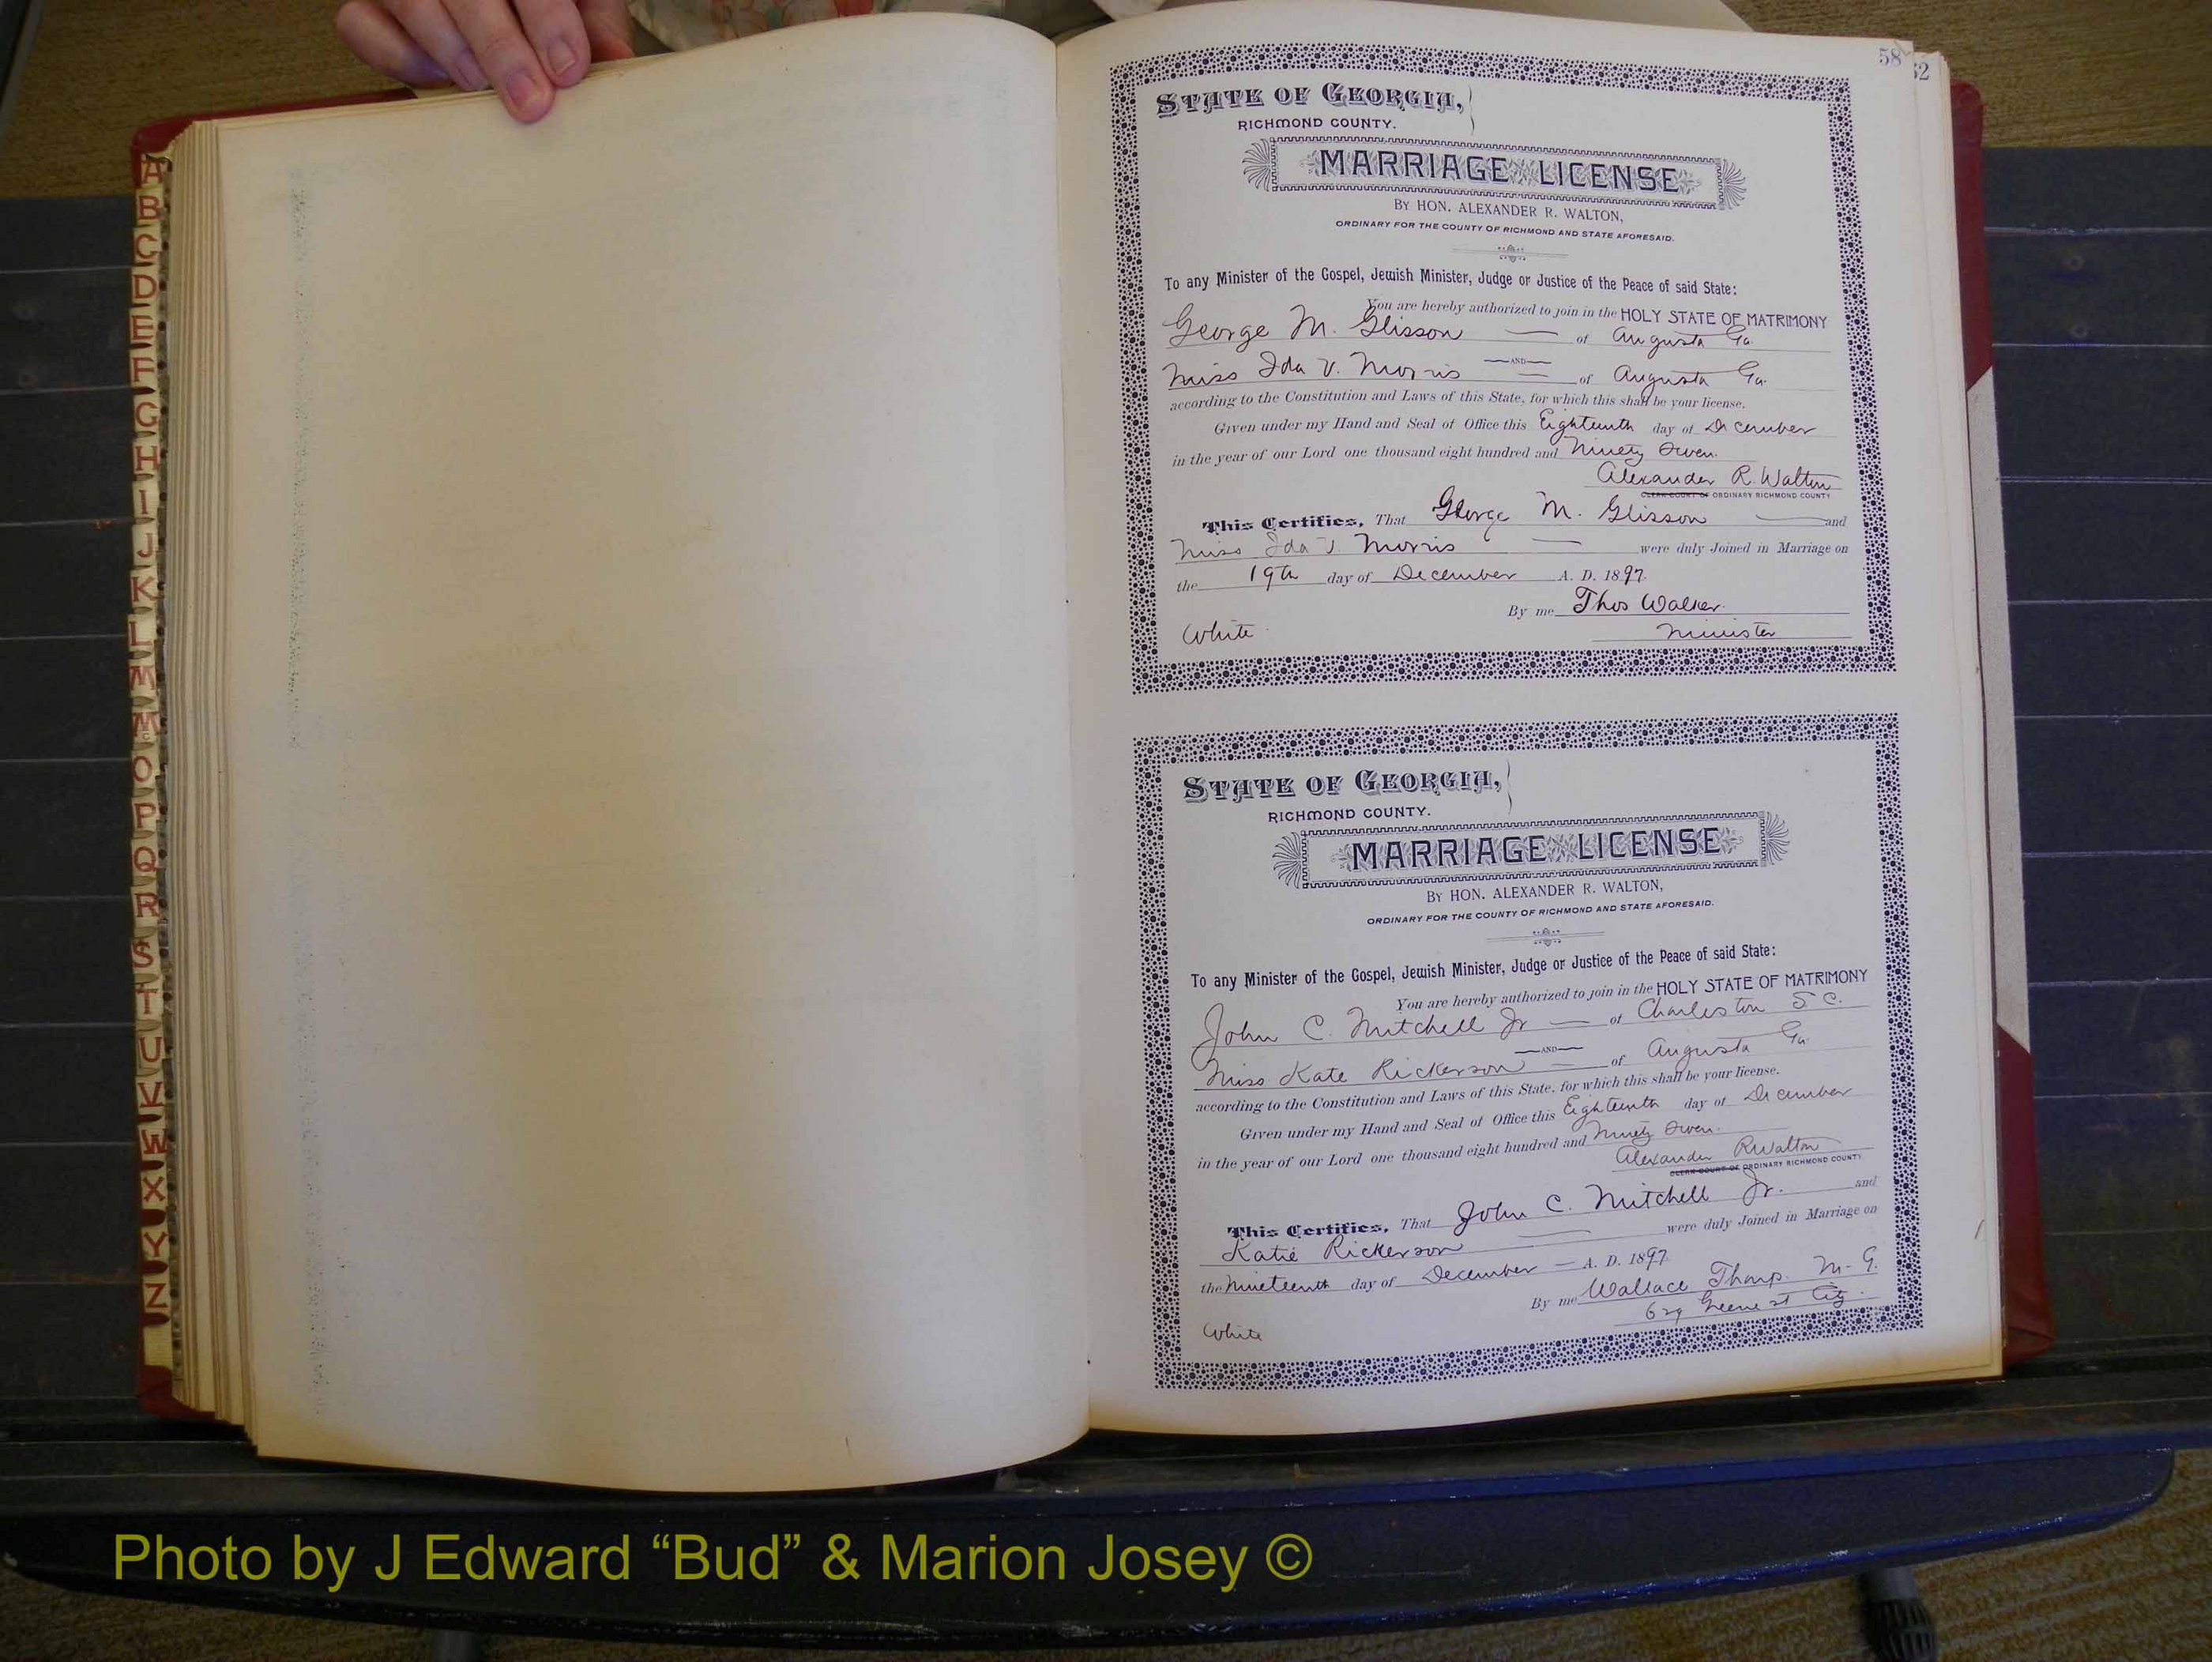 A
B
C
D
E
F
G
H
I
J
K
L
M
Mc
O
P
Q
R
S
T
U
V
W
X
Y
Z
58
62
STATE OF GEORGIA,
RICHMOND COUNTY.
MARRIAGE LICENSE
BY HON. ALEXANDER R. WALTON,
ORDINARY FOR THE COUNTY OF RICHMOND AND STATE AFORESAID.
To any Minister of the Gospel, Jewish Minister, Judge or Justice of the Peace of said State:
You are hereby authorized to join in the HOLY STATE OF MATRIMONY
George M. Glisson of Augusta Ga.
AND
Miss Ida V. Morris of Augusta Ga.
according to the Constitution and Laws of this State, for which this shall be your license.
Given under my Hand and Seal of Office this Eighteenth day of December
in the year of our Lord one thousand eight hundred and Ninety Seven.
Alexander R. Walton
CLERK COURT OF ORDINARY RICHMOND COUNTY
This Certifies, That George M. Glisson and
Miss Ida V. Morris were duly Joined in Marriage on
the 19th day of December A. D. 1897.
By me Thos Walker.
White Minister
STATE OF GEORGIA,
RICHMOND COUNTY.
MARRIAGE LICENSE
BY HON. ALEXANDER R. WALTON,
ORDINARY FOR THE COUNTY OF RICHMOND AND STATE AFORESAID.
To any Minister of the Gospel, Jewish Minister, Judge or Justice of the Peace of said State:
You are hereby authorized to join in the HOLY STATE OF MATRIMONY
John C. Mitchell Jr of Charleston S C.
AND
Miss Kate Rickerson of Augusta Ga.
according to the Constitution and Laws of this State, for which this shall be your license.
Given under my Hand and Seal of Office this Eighteenth day of December
in the year of our Lord one thousand eight hundred and Ninety Seven.
Alexander R Walton
CLERK COURT OF ORDINARY RICHMOND COUNTY
This Certifies, That John C. Mitchell Jr. and
Katie Rickerson were duly Joined in Marriage on
the Nineteenth day of December A. D. 1897.
By me Wallace Tharp. M-G.
629 Greene st City.
White
Photo by J Edward “Bud” & Marion Josey ©